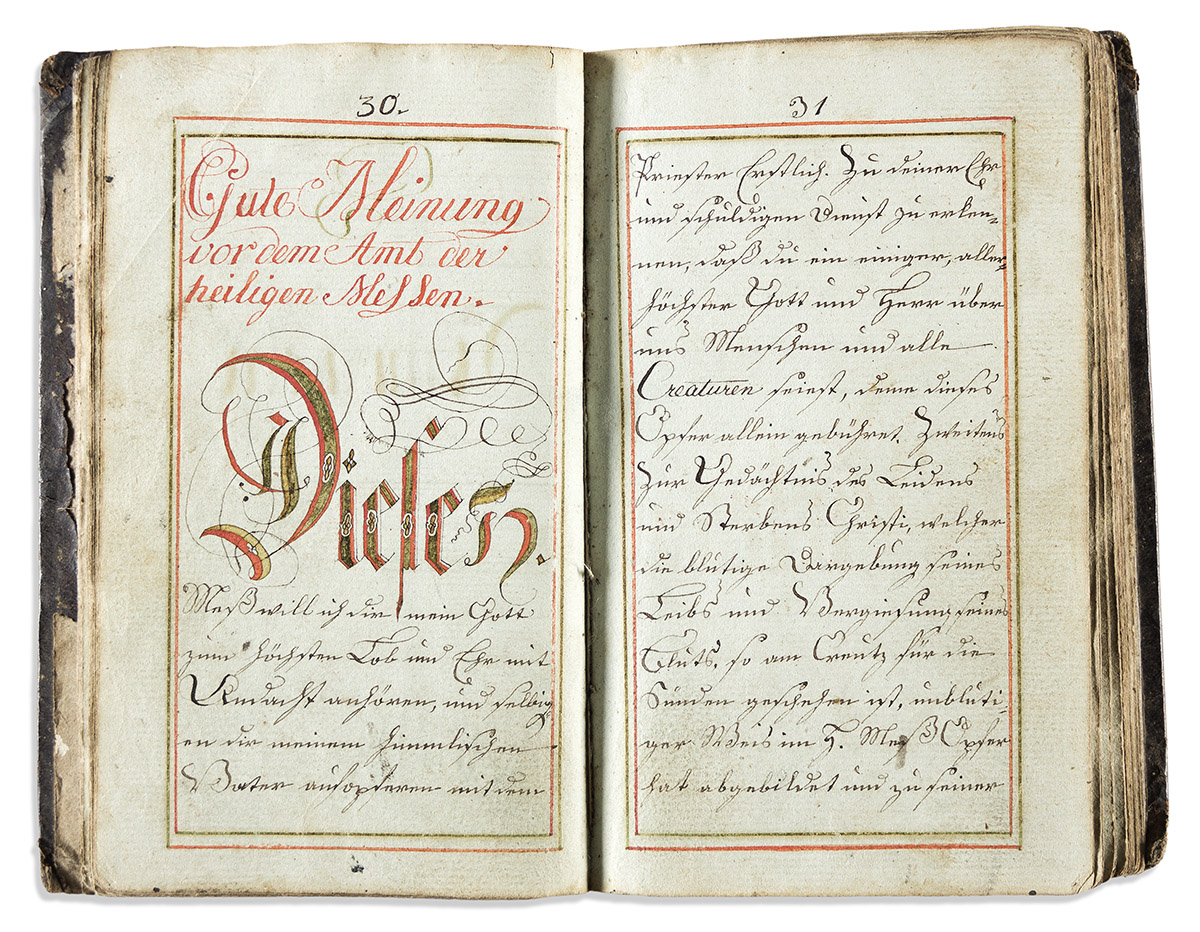 30.
Gute Meinung
vor dem Amt der
heiligen Messen.
Diesen.
Meß will ich dir mein Gott
zum höchsten Lob und Ehr mit
Andacht anhören, und selbig-
en dir meinem himmlischen
Vater aufopferen mit dem
31
Priester Erstlich. Zu deiner Ehr
und schuldigen Dienst zu erken-
nen, daß du ein einiger, aller-
höchster Gott und Herr über
uns Menschen und alle
Creaturen seiest, deme dieses
Opfer allein gebühret. Zweitens
Zur Gedächtnis des Leidens
und Sterbens Christi, welcher
die blutige Dargebung seines
Leibs und Vergiesung seines
Bluts, so am Creutz für die
Sünden geschehen ist, unbluti-
ger Weis im H. Meß Opfer
hat abgebildet und zu seiner